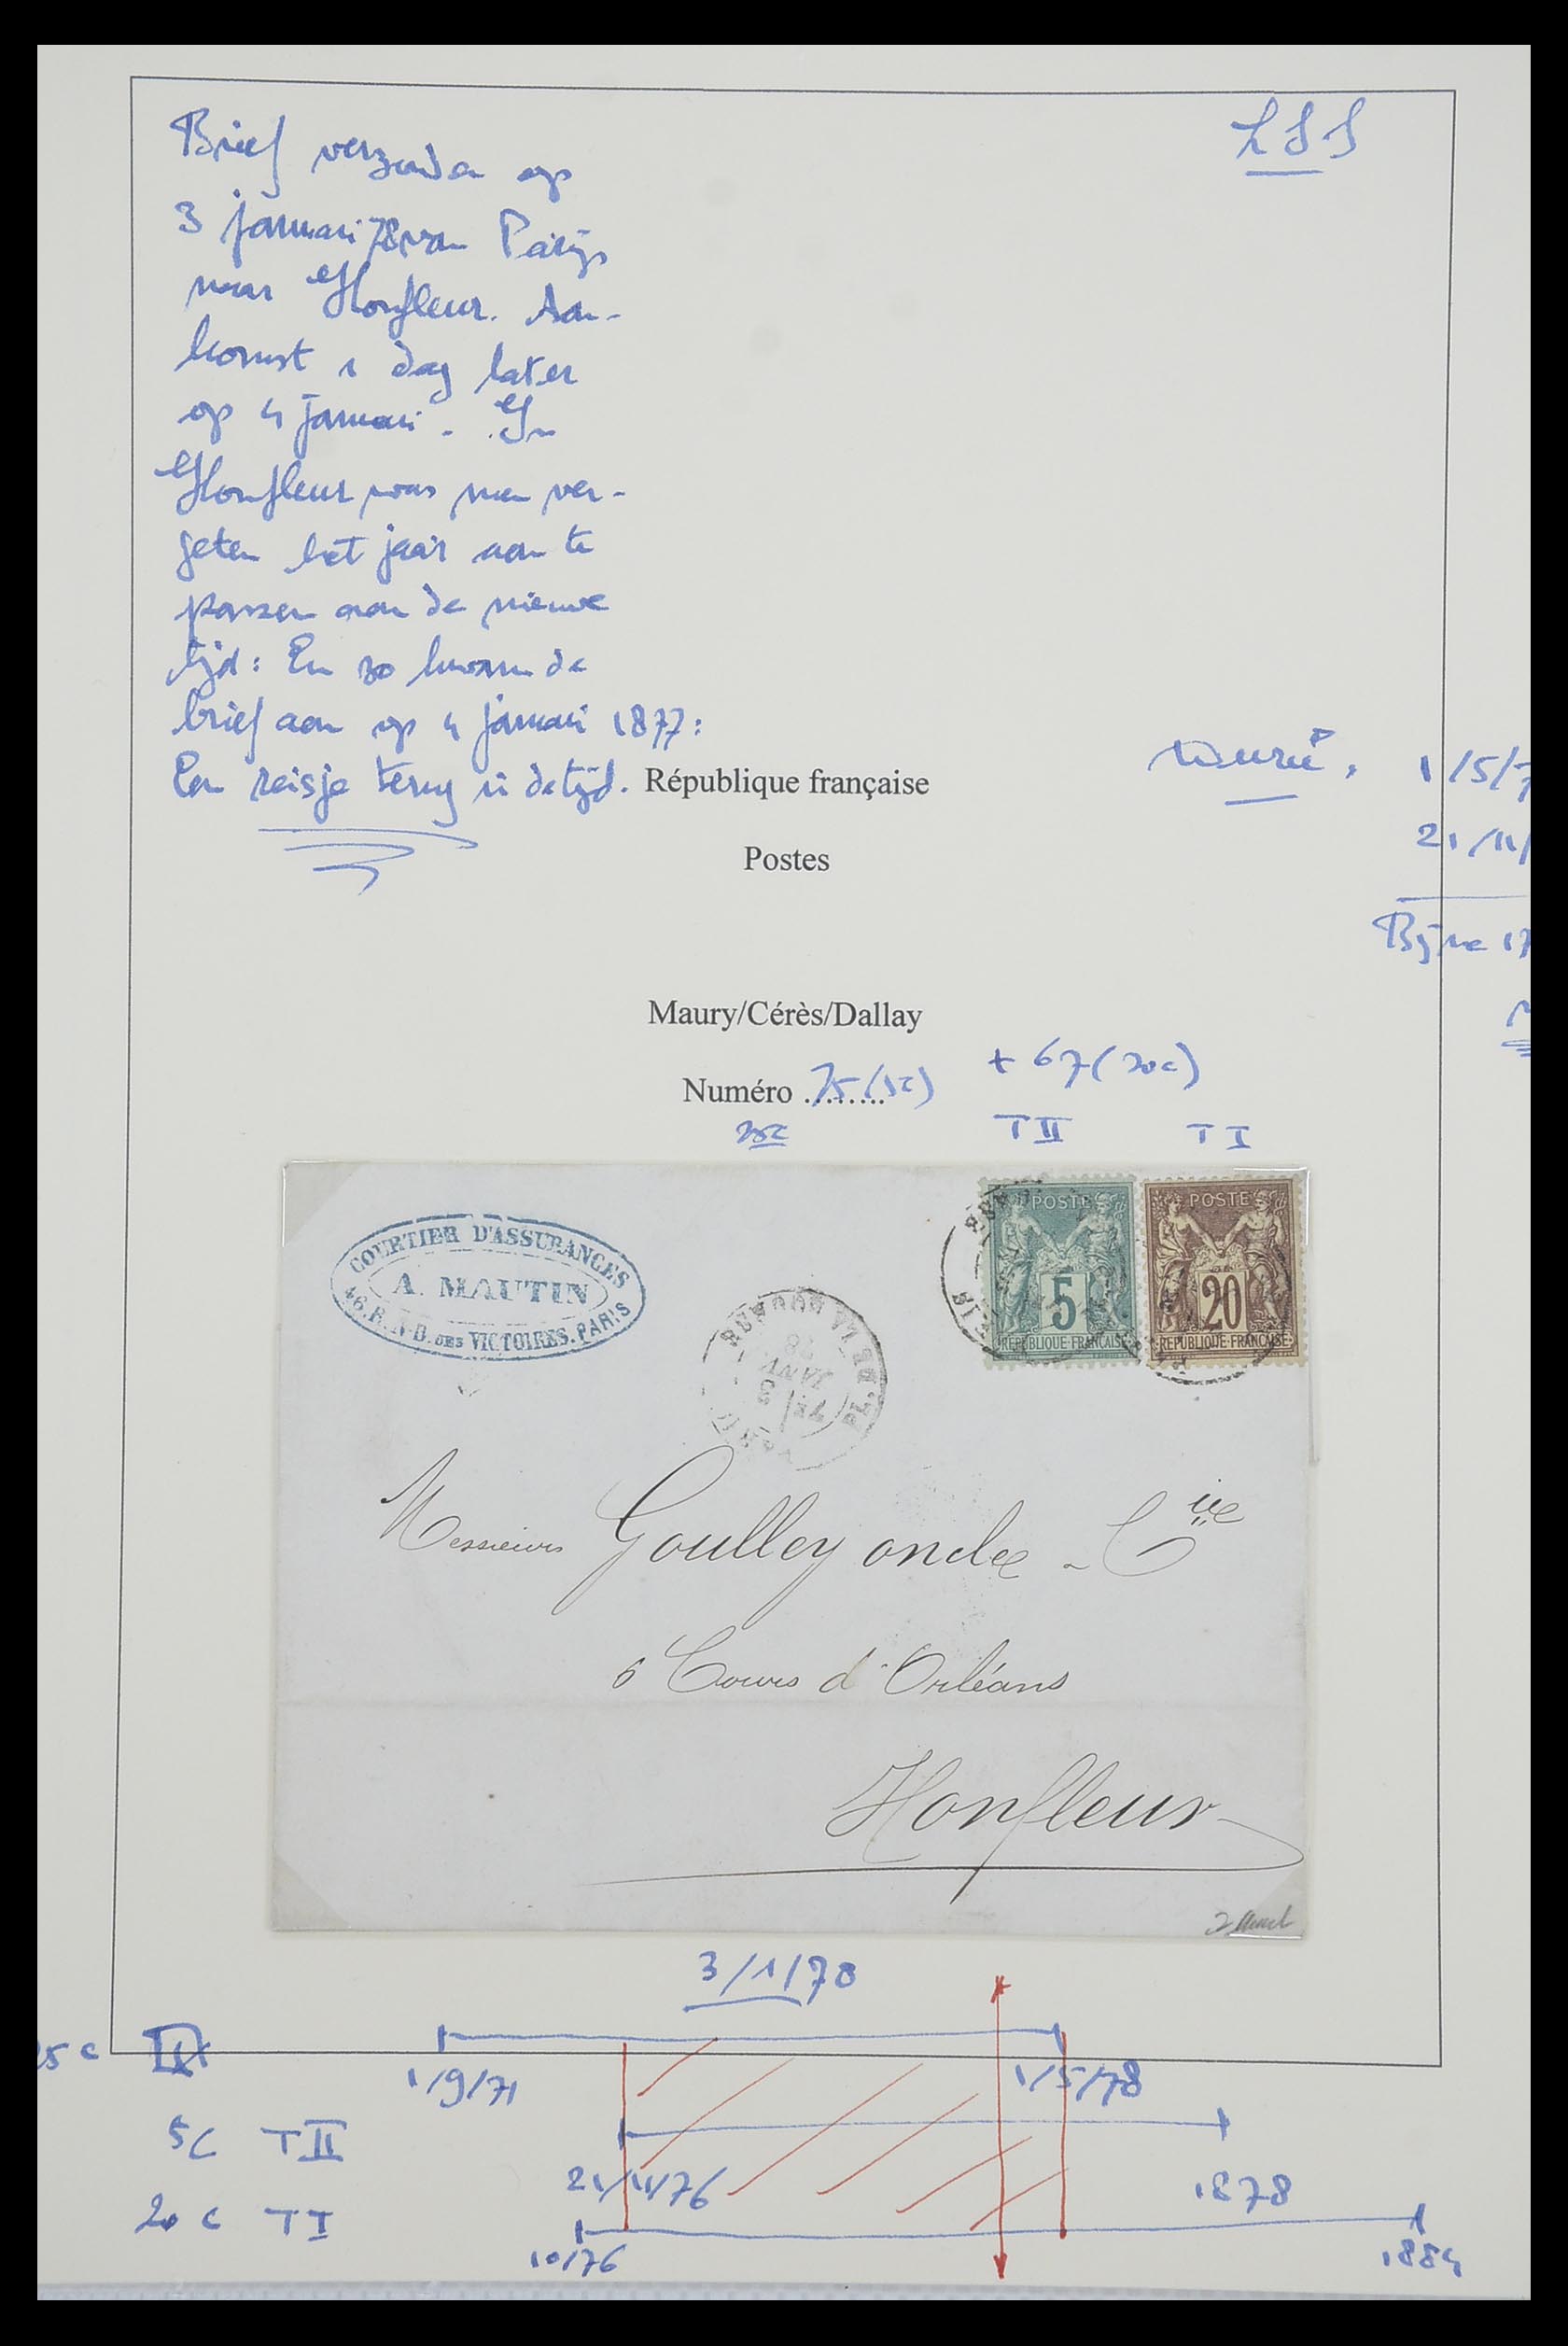 Brief verzonden op
3 januari 78 van Parijs
naar Honfleur. Aan-
komst 1 dag later
op 4 januari. In
Honfleur was men ver-
geten het jaar aan te
passen aan de nieuwe
tijd: En zo kwam de
brief aan op 4 januari 1877:
Een reisje terug in de tijd.
République française
1/5/7
Postes
21/11/
Bijna 17
Maury/Cérès/Dallay
Numéro ........ 75 (5c) + 67 (20c)
25c TII TI
COURTIER D'ASSURANCES
A. MAUTIN
46.R.N-D. DES VICTOIRES. PARIS
POSTE
5
REPUBLIQUE FRANCAISE
POSTE
20
REPUBLIQUE FRANCAISE
PL. DE LA BOURSE
3
JANV
78
Messieurs Goulley et C
6 Cours d'Orléans
Honfleur
3/1/78
25 c
1/9/71 1/5/78
5c TII
21/11/76 1878
20 c TI
10/76 1884